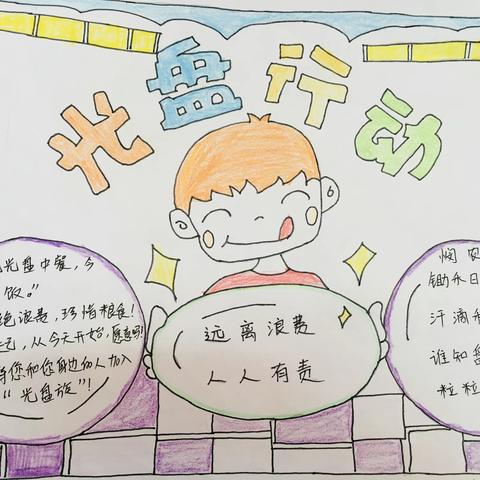 光盘行动
光盘中餐，今
饭。”
绝浪费，珍惜粮食！
从今天开始，愿意吗？
将您和您身边的人加入
“光盘族”！
远离浪费
人人有责
悯农
锄禾日
汗滴禾
谁知盘
粒粒